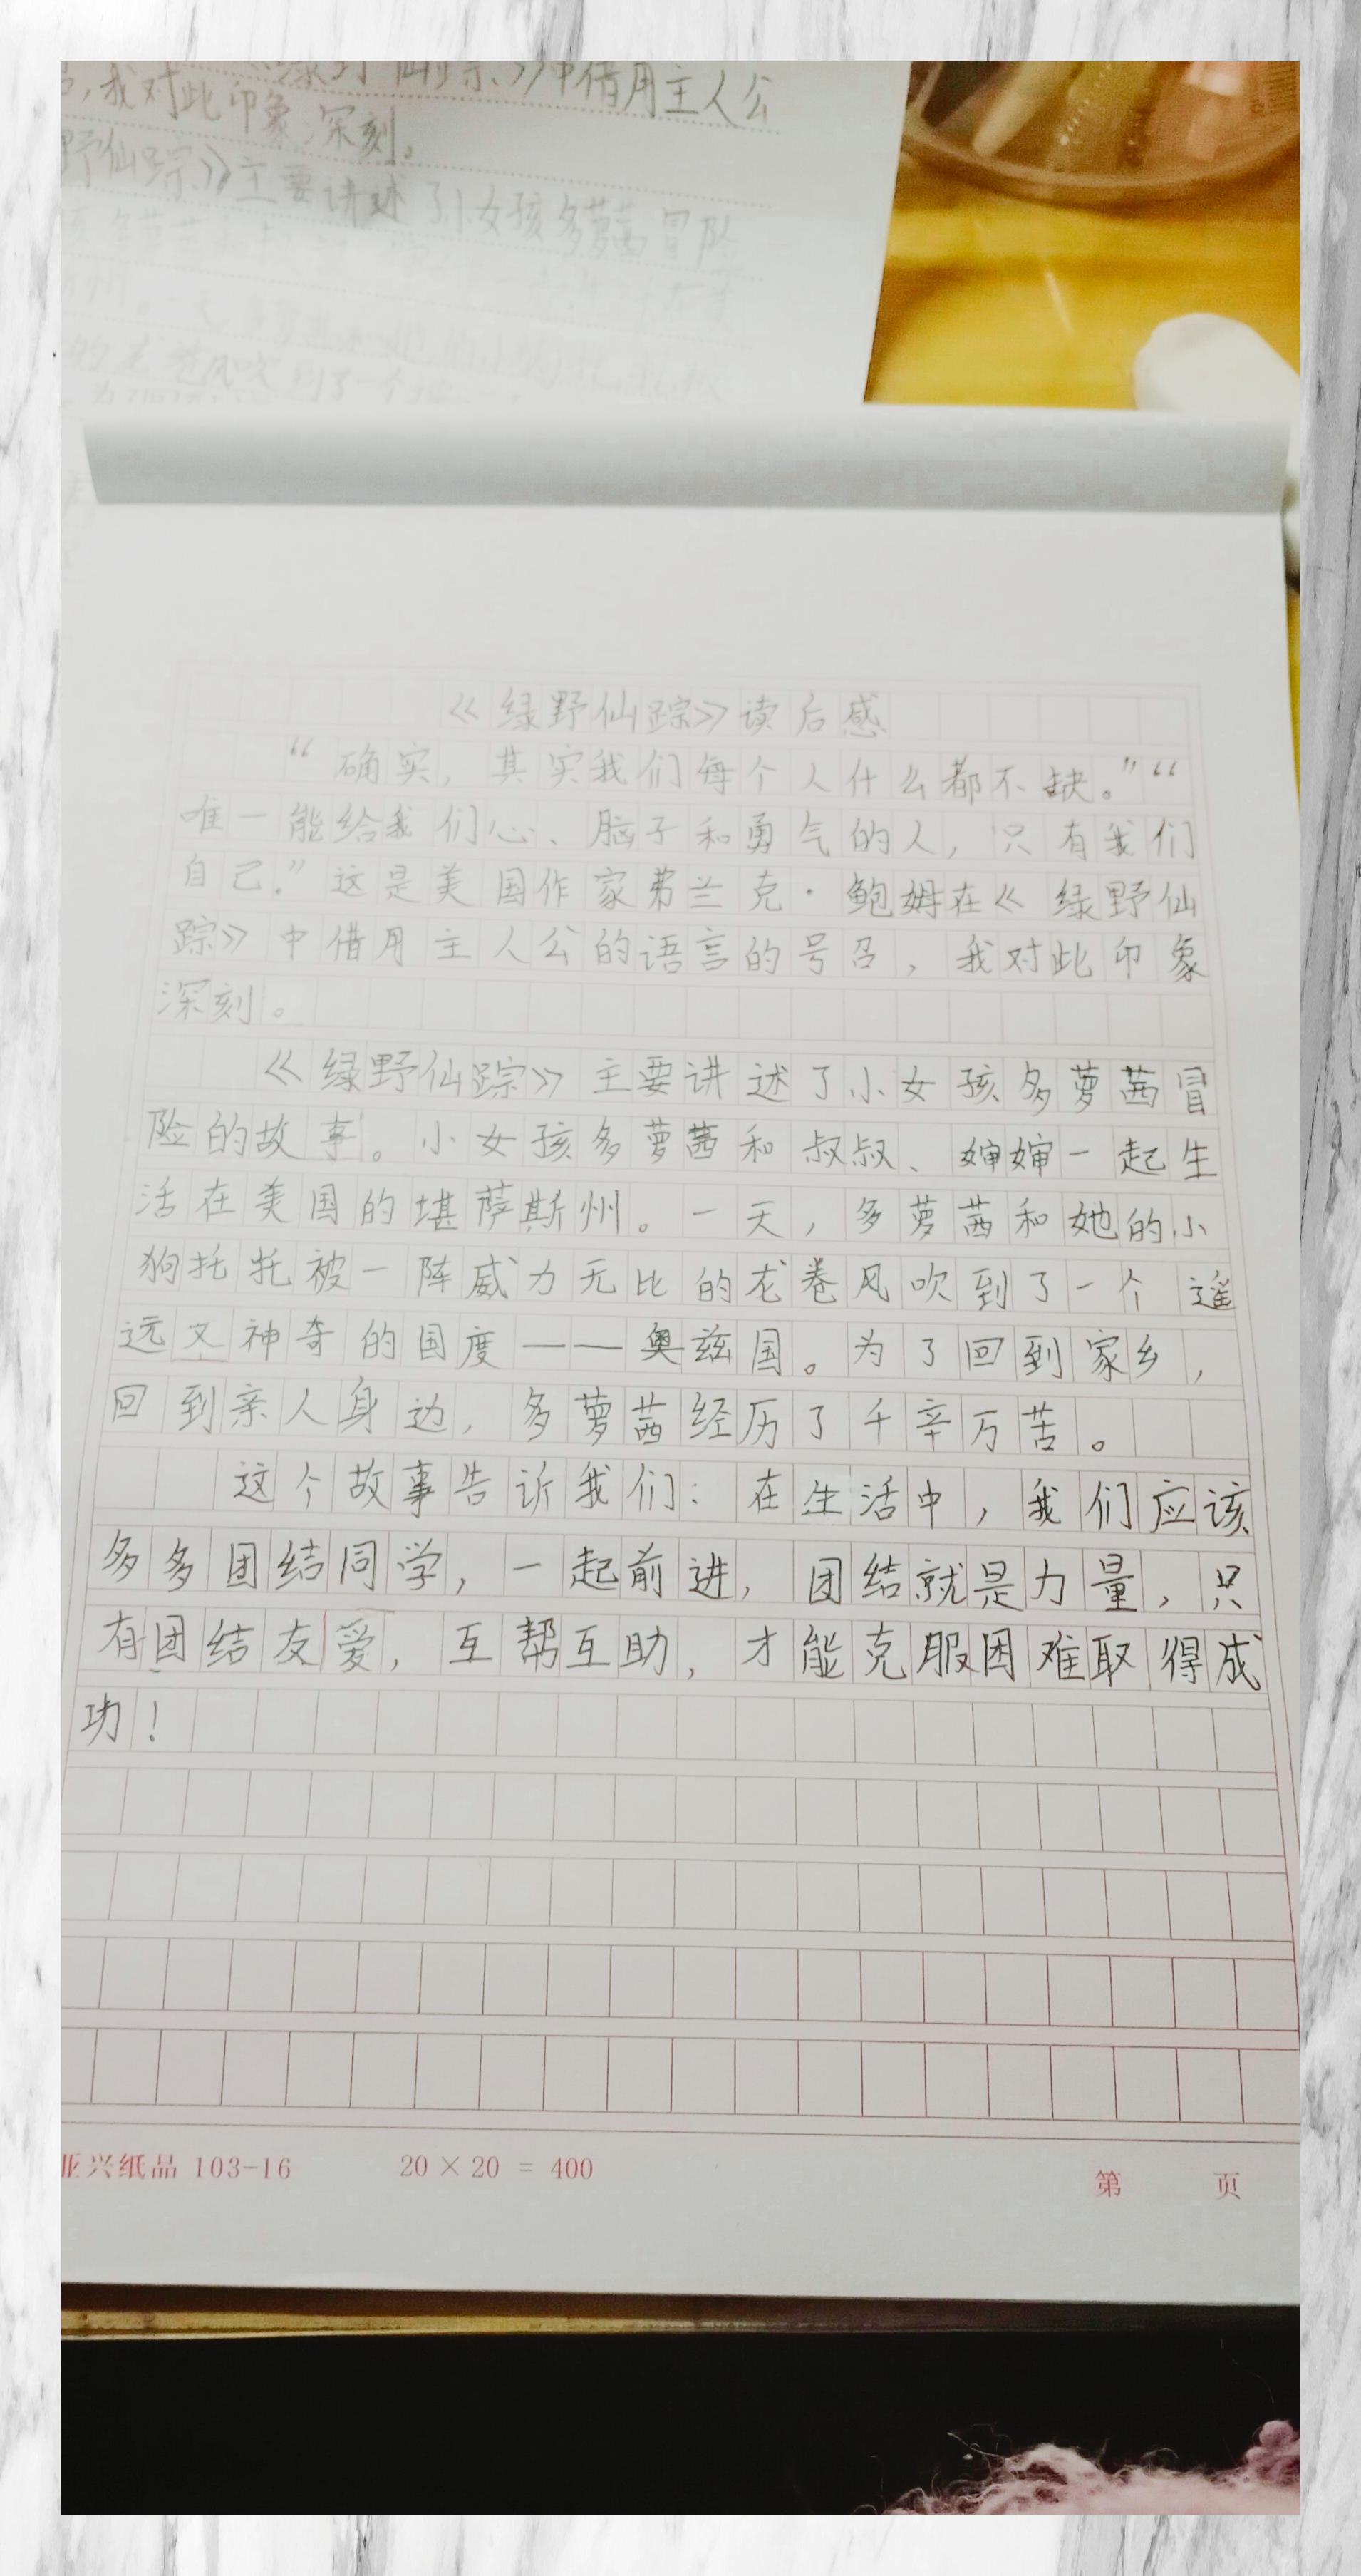 我对此印象深刻。
仙踪》中借用主人公
野仙踪》主要讲述了小女孩多萝茜冒险
《绿野仙踪》读后感
“确实，其实我们每个人什么都不缺。”“
唯一能给我们心、脑子和勇气的人，只有我们
自己.”这是美国作家弗兰克·鲍姆在《绿野仙
踪》中借用主人公的语言的号召，我对此印象
深刻。
《绿野仙踪》主要讲述了小女孩多萝茜冒
险的故事。小女孩多萝茜和叔叔、婶婶一起生
活在美国的堪萨斯州。一天，多萝茜和她的小
狗托托被一阵威力无比的龙卷风吹到了一个遥
远又神奇的国度——奥兹国。为了回到家乡，
回到亲人身边，多萝茜经历了千辛万苦。
这个故事告诉我们：在生活中，我们应该
多多团结同学，一起前进，团结就是力量，只
有团结友爱，互帮互助，才能克服困难取得成
功！
亚兴纸品 103-16 20×20=400 第 页